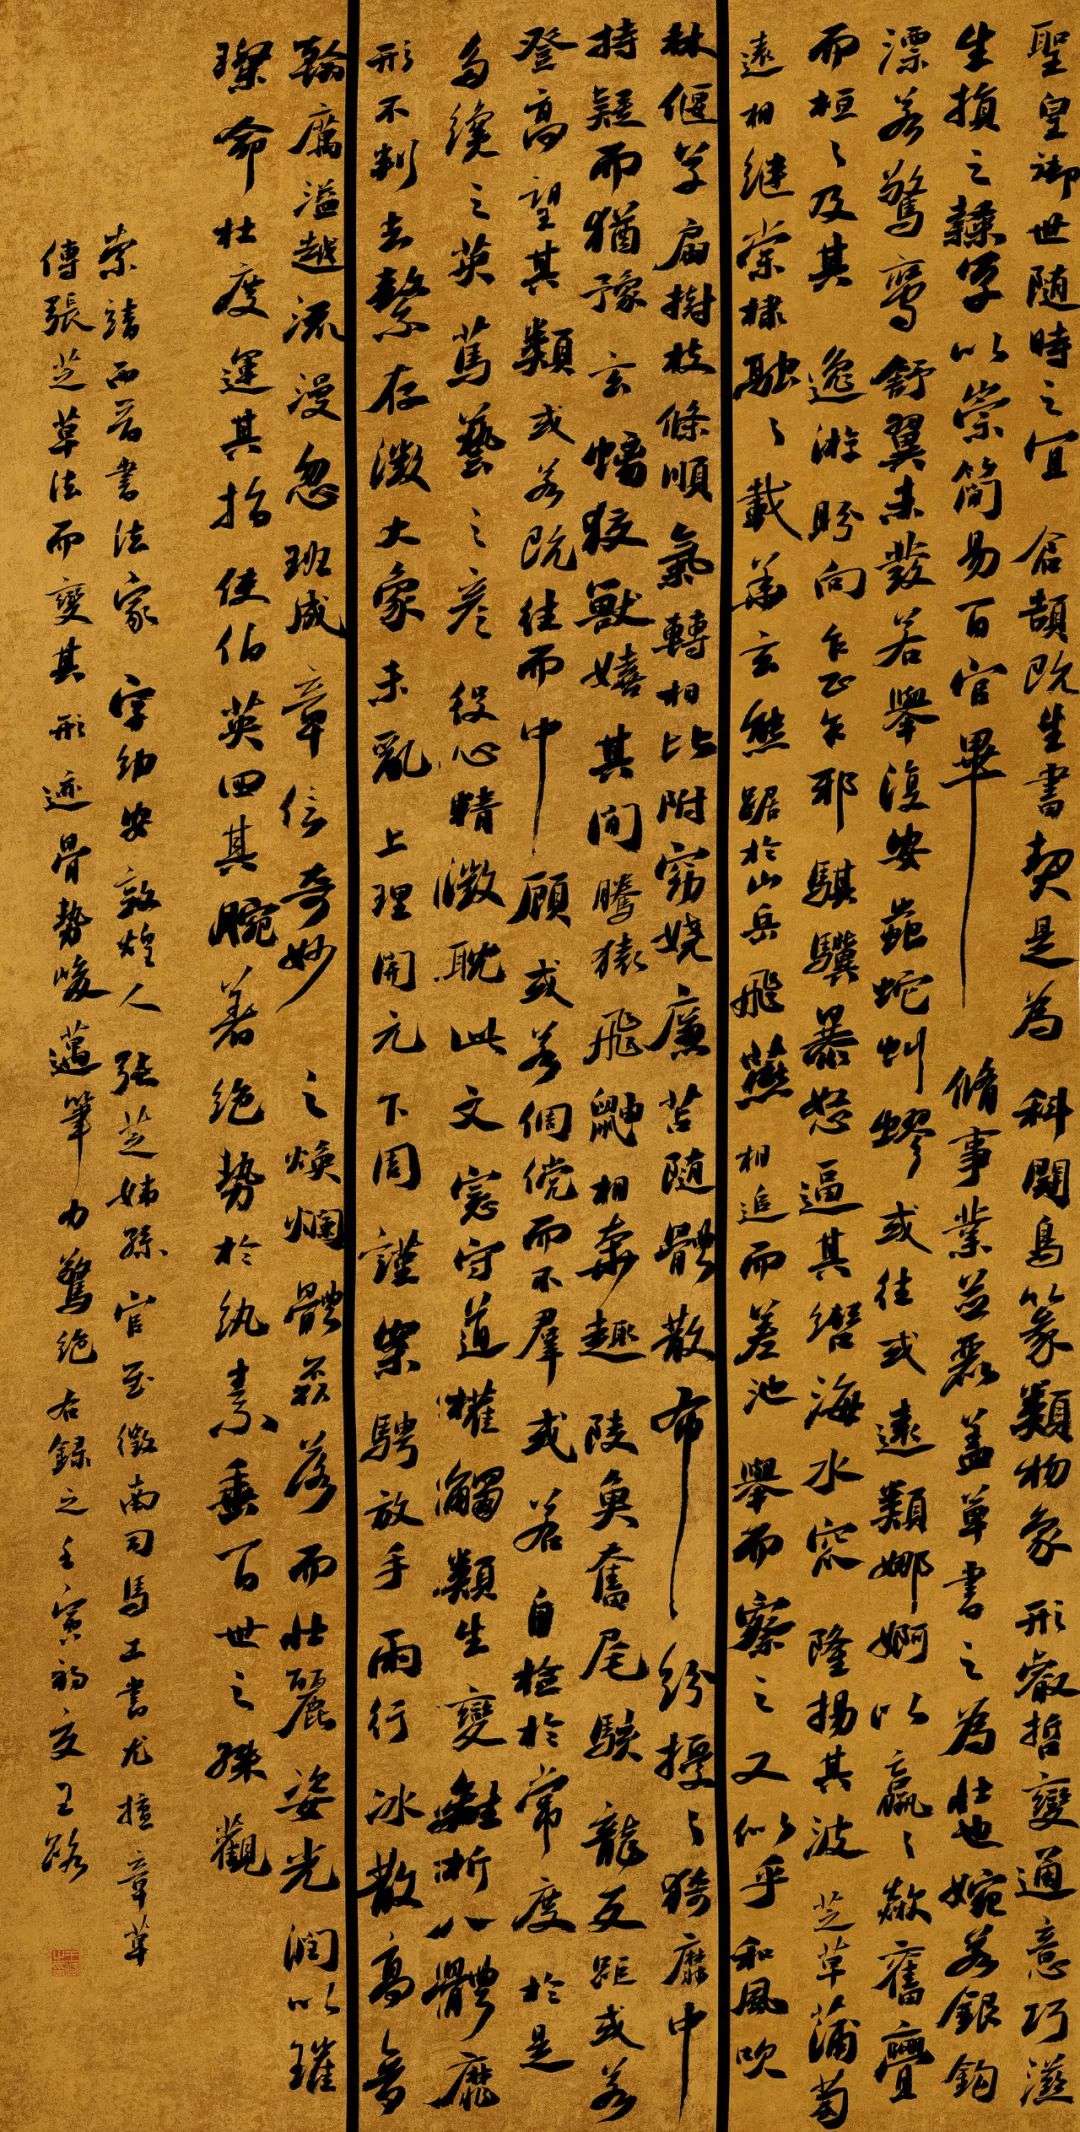 聖皇御世随時之宜倉頡既生書契是為科鬪鳥篆類物象形叡哲變通意巧滋
生損之隸草以崇簡易百官畢脩事業並麗蓋草書之為狀也婉若銀鈎
漂若驚鸞舒翼未發若舉復安蟲蛇虯蟉或往或還類婀娜以羸羸欻奮亹
而桓〻及其逸遊盻向乍正乍邪騏驥暴怒逼其轡海水窊隆揚其波芝草蒲萄
還相継棠棣融〻載其華玄熊踞於山岳飛燕相追而差池舉而察之又似乎和風吹
林偃草扇樹枝條順氣轉相比附窈嬈廉苫随體散布紛擾〻猗靡中
持疑而猶豫玄螭狡獸嬉其間騰猿飛鼬相奔趣陵魚奮尾駭龍反距或若
登高望其類或若既往而中顧或若倜儻而不羣或若自檢於常度於是
多才之英篤藝之彦役心精微耽此文憲守道權觸類生變離析八體靡
形不判去繁存微大象未亂上理開元下周謹案騁放手兩行冰散高音
翰厲溢越流漫忽班成章信奇妙之煥爛體磊落而壯麗姿光潤以璀
璨命杜度運其指使伯英回其腕著絶勢於紈素垂百世之殊觀
索靖西晋書法家字幼安敦煌人張芝姊孫官至徵南司馬工書尤擅章草
傳張芝草法而變其形迹骨勢峻邁筆力驚絶右録之壬寅初夏王路